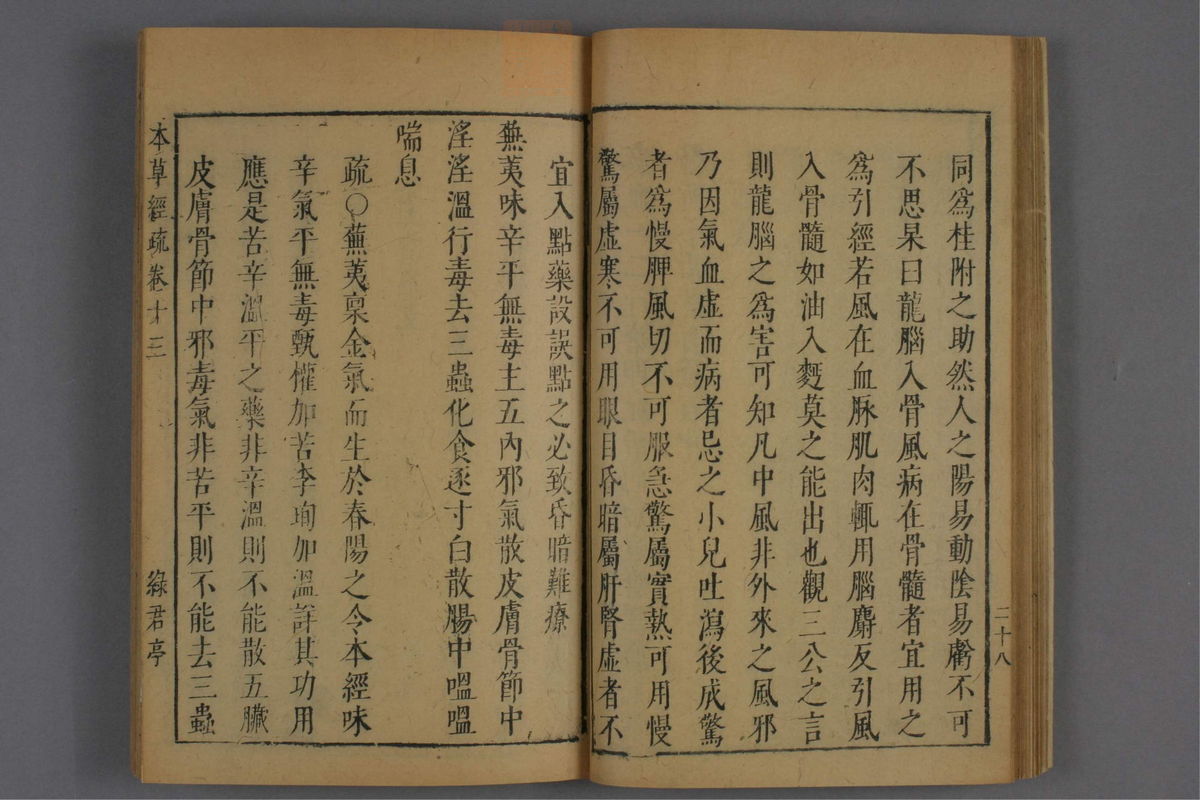 同爲桂附之助然人之陽易動陰易虧不可
不思杲曰龍腦入骨風病在骨髓者宜用之
爲引經若風在血脉肌肉輒用腦麝反引風
入骨髓如油入麪莫之能出也觀三公之言
則龍腦之爲害可知凡中風非外來之風邪
乃因氣血虛而病者忌之小兒吐瀉後成驚
者爲慢脾風切不可服急驚屬實熱可用慢
驚屬虛寒不可用眼目昏暗屬肝腎虛者不
二十八
宜入點藥設誤點之必致昏暗難療
蕪荑味辛平無毒主五內邪氣散皮膚骨節中
淫淫溫行毒去三蟲化食逐寸白散腸中嗢嗢
喘息
疏○蕪荑稟金氣而生於春陽之令本經味
辛氣平無毒甄權加苦李珣加溫詳其功用
應是苦辛溫平之藥非辛溫則不能散五臟
皮膚骨節中邪毒氣非苦平則不能去三蟲
本草經疏卷十三
綠君亭